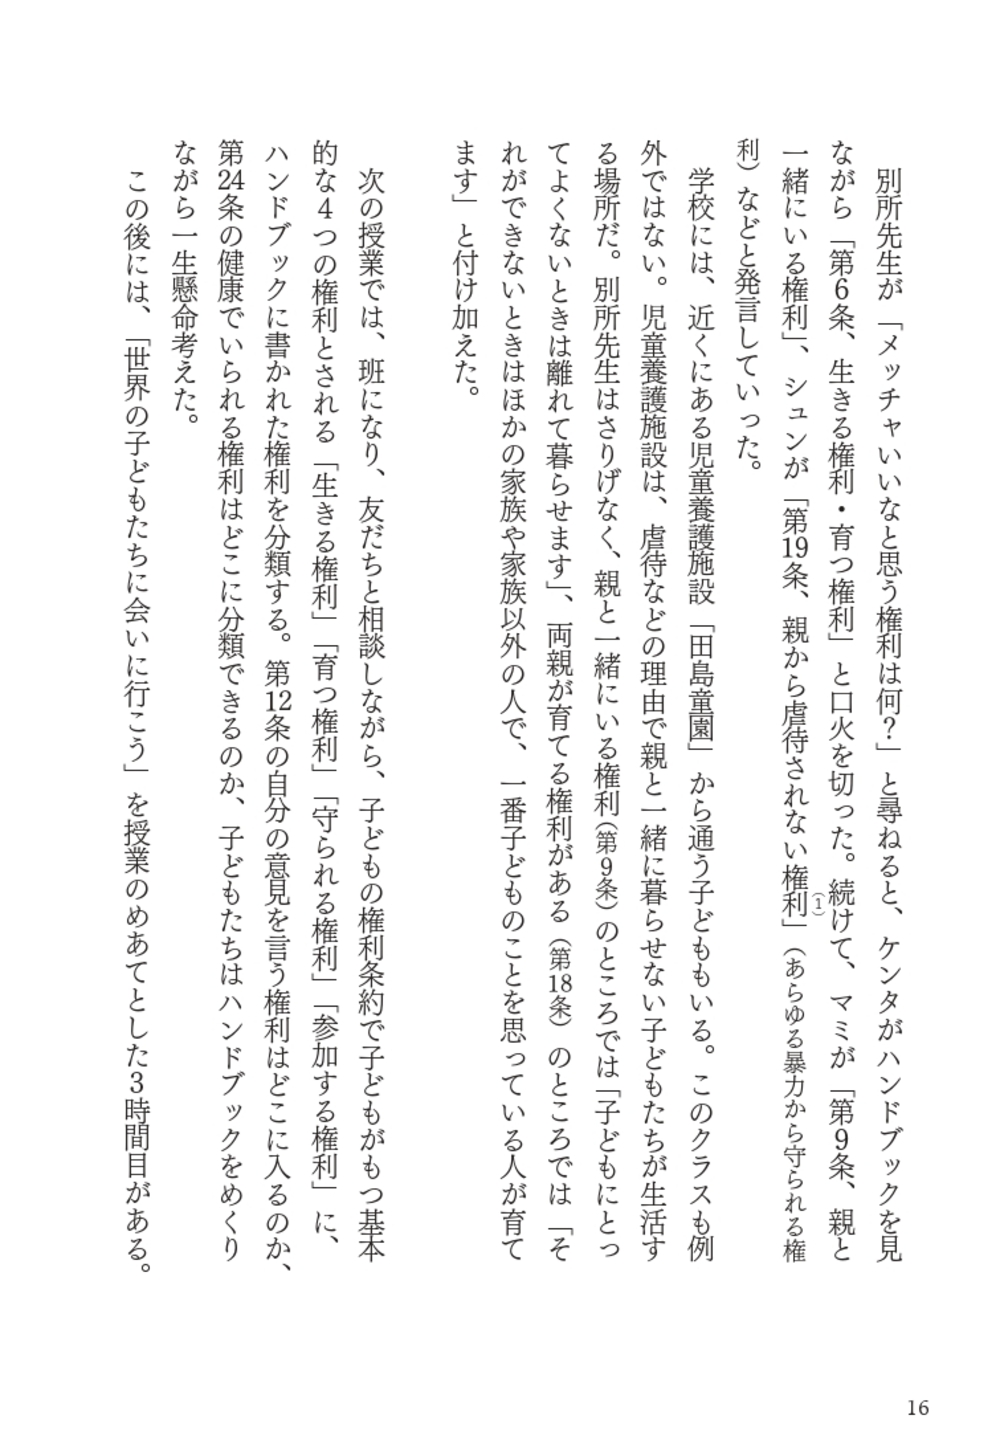 別所先生が「メッチャいいなと思う権利は何？」と尋ねると、ケンタがハンドブックを見
ながら「第6条、生きる権利・育つ権利」と口火を切った。続けて、マミが「第9条、親と
一緒にいる権利」、シュンが「第19条、親から虐待されない権利」(1)（あらゆる暴力から守られる権
利）などと発言していった。
学校には、近くにある児童養護施設「田島童園」から通う子どももいる。このクラスも例
外ではない。児童養護施設は、虐待などの理由で親と一緒に暮らせない子どもたちが生活す
る場所だ。別所先生はさりげなく、親と一緒にいる権利（第9条）のところでは「子どもにとっ
てよくないときは離れて暮らせます」、両親が育てる権利がある（第18条）のところでは「そ
れができないときはほかの家族や家族以外の人で、一番子どものことを思っている人が育て
ます」と付け加えた。
次の授業では、班になり、友だちと相談しながら、子どもの権利条約で子どもがもつ基本
的な4つの権利とされる「生きる権利」「育つ権利」「守られる権利」「参加する権利」に、
ハンドブックに書かれた権利を分類する。第12条の自分の意見を言う権利はどこに入るのか、
第24条の健康でいられる権利はどこに分類できるのか、子どもたちはハンドブックをめくり
ながら一生懸命考えた。
この後には、「世界の子どもたちに会いに行こう」を授業のめあてとした3時間目がある。
16